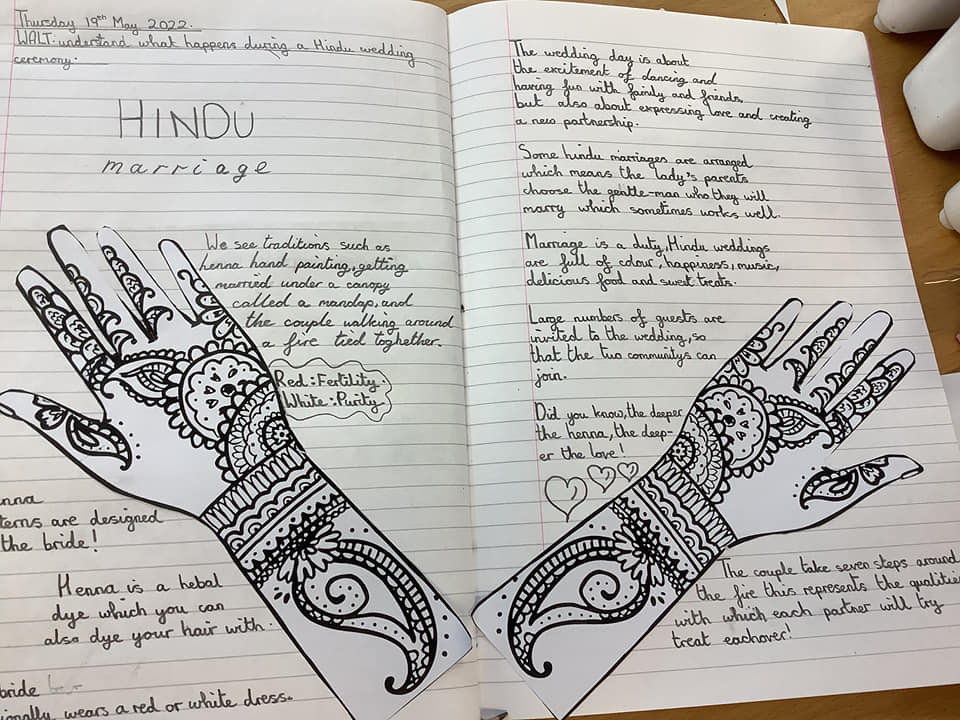 Thursday 19th May 2022.
WALT: understand what happens during a Hindu wedding
ceremony.
HINDU
marriage
We see traditions such as
henna hand painting, getting
married under a canopy
called a mandap, and
the couple walking around
a fire tied toghether.
Red: Fertility.
White: Purity
nna
terns are designed
the bride!
Henna is a hebal
dye which you can
also dye your hair with.
bride
ionally wears a red or white dress.
The wedding day is about
the excitement of dancing and
having fun with family and friends,
but also about expressing love and creating
a new partnership.
Some hindu marriages are arranged
which means the lady's parents
choose the gentle-man who they will
marry which sometimes works well.
Marriage is a duty, Hindu weddings
are full of colour, happiness, music,
delicious food and sweet treats.
Large numbers of guests are
invited to the wedding, so
that the two communitys can
join.
Did you know, the deeper
the henna, the deep-
er the love!
The couple take seven steps around
the fire this represents the qualities
with which each partner will try
treat eachover!